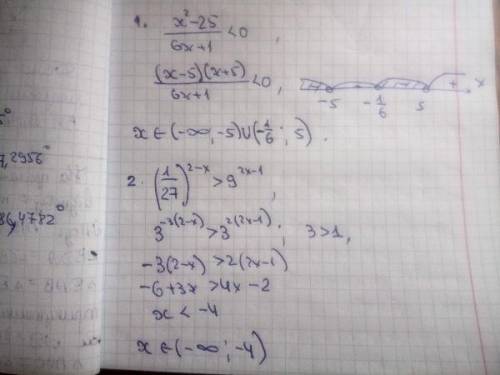 1. (x²-25)/(6x+1) <0,
((x-5)(x+5))/(6x+1) <0,
-5 -1/6 5 + x
x ∈ (-∞; -5)∪(-1/6; 5).
2. (1/27)^(2-x) > 9^(2x-1),
3^(-3(2-x)) > 3^(2(2x-1)); 3>1,
-3(2-x) > 2(2x-1)
-6+3x > 4x-2
x < -4
x ∈ (-∞; -4)
,2956°
36,4782°